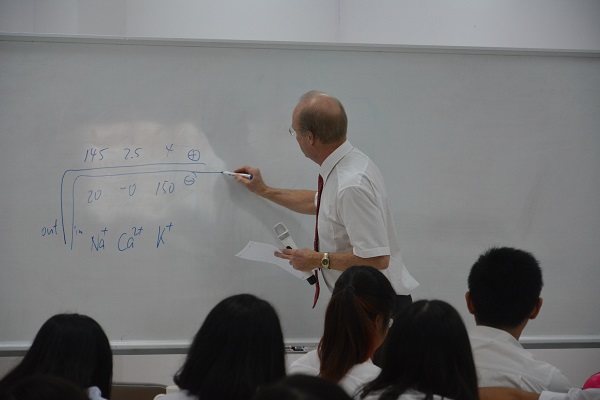 145 2.5 4 ⊕
20 ~0 150 ⊖
out in Na+ Ca2+ K+